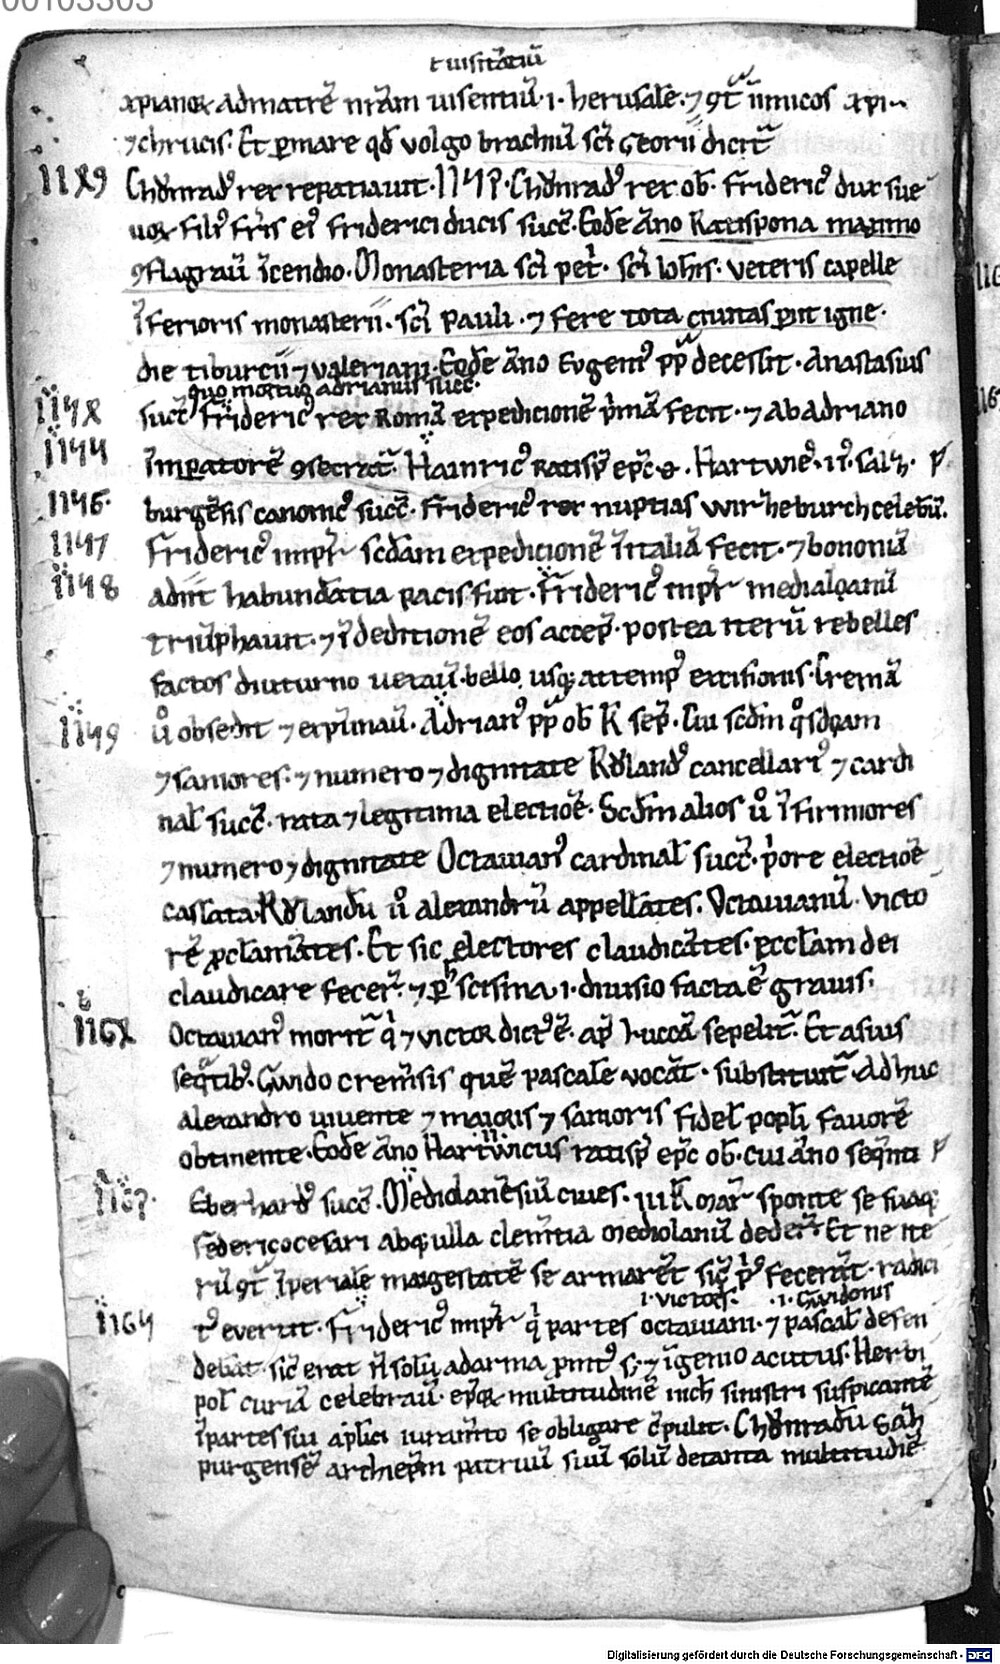 00103303
t uisitatiũ
xpianoꝝ ad matrẽ nr̃am uisentiũ .i. herusalẽ. ⁊ ꝯt̃ inimicos xp̃i
⁊ chrucis. Et ꝑ mare qđ volgo brachiũ sc̃i Georii dicit᷑
Chŏnradꝰ rex repatiauit. Chŏnradꝰ rex ob. Fridericꝰ dux sue
uoꝝ filiꝰ fr̃is eiꝰ friderici ducis succ̃. Eodẽ ãno Ratispona maximo
ꝯflagrau̅ ĩcendio. Monasteria sc̃i pet̃. sc̃i Ioh̃is. veteris capelle
ĩferioris monasterii. sc̃i Pauli. ⁊ fere tota ciuitas perit igne.
die tiburcii ⁊ valeriani. Eodẽ ãno Eugeniꝰ pp̃ decessit. Anastasius
quo mortuo adrianus succ̃.
succ̃ Fridericꝰ rex Romã expedicionẽ p̃mã fecit. ⁊ ab adriano
ĩmꝑatorẽ ꝯsecrat᷑. Hainricꝰ ratisp̃ ep̃c. Hartwicꝰ .ii.
1146. burgẽsis canonicꝰ succ̃. Fridericꝰ rex nuptias wirzeburch celebũ.
1147 Fridericꝰ impr̃ scđam expedicionẽ ĩ italiã fecit. ⁊ bononiã
1148 adiit habundãtia pacis fuit. Fridericꝰ impr̃ mediolanũ
triũphauit. ⁊ ĩ deditionẽ eos accep̃. postea iterũ rebelles
factos diuturno uexau̅. bello usq; at temp̃
1149 ů obsedit ⁊ expũnau̅. Adrianꝰ pp̃ ob. K sep̃. Cui scđm q̊sdam
⁊ saniores. ⁊ numero ⁊ dignitate Rŏlandꝰ cancellariꝰ ⁊ cardi
nal̃ succ̃. rata ⁊ legitima electiõe. Scđm alios ů ĩfirmiores
⁊ numero ⁊ dignitate Octauianꝰ cardinal̃ succ̃. p̃ore electiõe
cassata. Rŏlandũ ů alexandrũ appellãtes. Octauianũ. victo
rẽ ꝓclamãtes. Et sic electores claudicãtes. eccl̃am dei
claudicare fecer̃. ⁊ scisma .i. diuisio facta ẽ grauis.
Octauianꝰ morit᷑ qui ⁊ victor dictꝰ ẽ. ap̃ Luccã sepelit᷑. Et a suis
seq̃tibꝰ. Gwido crem̃sis quẽ pascalẽ vocãt. substituit᷑. Adhuc
alexandro uiuente ⁊ maioris ⁊ sanioris fidel̃ popl̃i fauorẽ
obtinente. Eodẽ ãno Hartwicus ratisp̃ ep̃c ob. cui ãno seq̃nti
Eberhardꝰ succ̃. Mediolanẽsiũ ciues. K mar̃ sponte se suaq;
federico cesari absq; ulla clem̃tia mediolanũ deder̃. Et ne ite
rũ ꝯt̃ ĩperialẽ maigestatẽ se armarẽt sic̃ p̃ꝰ fecerãt. radici
.i. victoris. .i. Gwidonis
1164 t̃ euertit. Fridericꝰ impr̃ qui partes octauiani. ⁊ pascal̃ defen
debat. sic̃ erat ñ solũ ad arma ꝓmtꝰ s; ⁊ ĩgenio acutus. Herbi
pol̃ curiã celebrau̅. ep̃oꝝ multitudinẽ nich̃ sinistri suspicantẽ
ĩ partes sui apl̃ici iuram̃to se obligare cõpulit. Chŏnradũ Salz
purgensẽ archiep̃m patruũ suũ solũ de tanta multitudiẽ
Digitalisierung gefördert durch die Deutsche Forschungsgemeinschaft - DFG